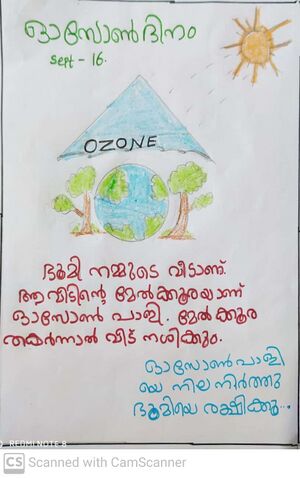 ഓസോൺദിനം
Sept - 16.
OZONE
ഭൂമി നമ്മുടെ വീടാണ്.
ആ വീടിന്റെ മേൽക്കൂരയാണ്
ഓസോൺ പാളി. മേൽക്കൂര
തകർന്നാൽ വീട് നശിക്കും.
ഓസോൺപാളി
യെ നിലനിർത്തു
ഭൂമിയെ രക്ഷിക്കൂ...
REDMI NOTE 8
CS Scanned with CamScanner